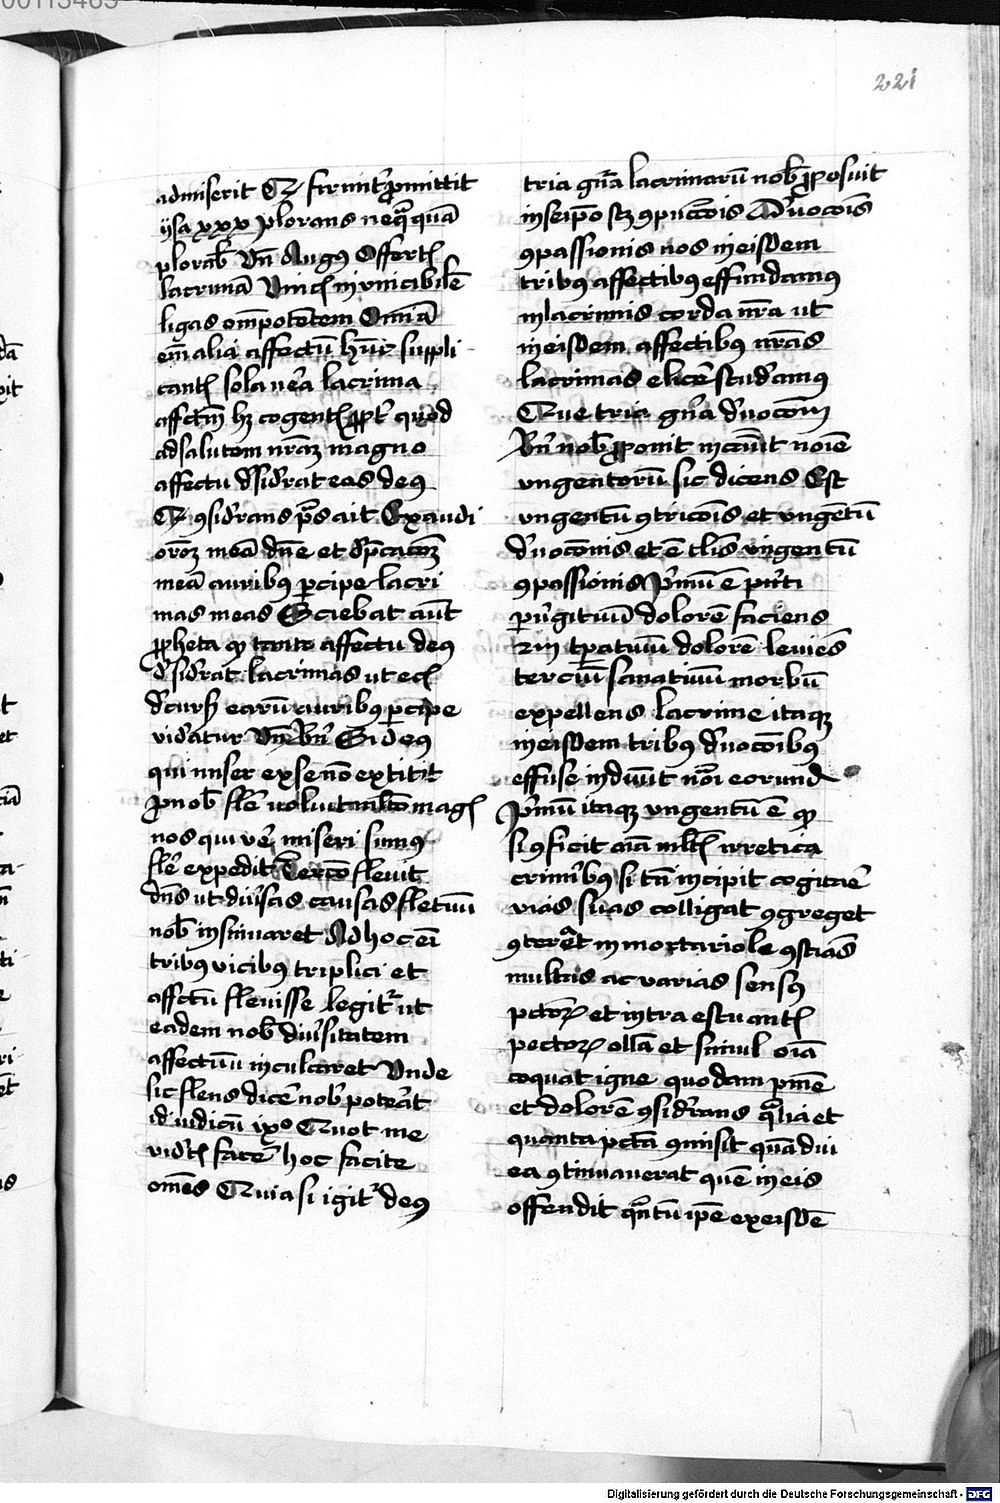 221
admiserit Et firmit̃ ꝓmittit
ysa xxx plorans neq̃quã
plorab̃ Vñ Aug9 Offert̃
lacrimã Vinc̃ invincibilẽ
ligas om̃potẽtem Om̃ã
em̃ alia affectũ hũt suppli
cant̃ sola ũa lacrima
affctũ hʒ cogent̃ ꝓpt̾ quod
ad salutem nrãʒ magno
affectu dʼsidʼrat eas de9
Et ꝯsidʼrans ꝓ̃s ait Exaudi
orõʒ meã dñe et dꝓcatõʒ
meã auribꝰ ꝑcipe lacri
mas meas Sciebat aũt
ꝓpheta ꝙ tanto affectu de9
dʼsidʼrat lacrimas ut eciã
dʼcurs̃ earũ auribꝰ ꝑcipe
vidʼatur Vñ Bñ Si de9
qui miser ex se nõ extitit
ꝓ nob̃ flẽ uoluit mltõ mag̃
nos qui ũe miseri sum9
flẽ expedit Tercõ fleuit
dñs ut diũsas causas fletuũ
nob̃ insinuaret Ad hoc eĩ
tribꝰ vicibꝰ triplici et
affctũ fleuisse legit̾ ut
eadem nob̃ diũsitatem
affectuũ inculcaret Vnde
sic flens dicẽ nob̾ potẽat
id iudicũ ixº Quot me
vidʼt̃ facẽ hoc facite
om̃es Quia si igit̾ de9
tria gñã lacrimarũ nob̃ ꝓposuit
in seip̃o sʒ ꝯpũctõis Dʼuocõis
ꝯpassionis nos in eisdem
tribꝰ affectibꝰ effundamus
in lacrimis corda nrã ut
in eisdem affectibꝰ nrãs
lacrimas elicẽ studʼamꝰ
Que tria gñã dʼuocõm
Bñ nob̃ ꝓponit in cãnt̃ noĩe
vngentorũ sic dicens Est
vngentũ ꝯtricõis et vngẽtũ
dʼuocõnis et ẽ tl̃is vngentũ
ꝯpassionis Pʼmũ ẽ pũti
pũgitiuũ dolorẽ faciens
2m tꝑatiuũ dolorẽ leuiẽs
tercũ sanatiuũ morbũ
expellens lacrime itaqʒ
in eisdem tribꝰ dʼuocõibꝰ
effuse indũut nõĩ eorund̃
Pʼmũ itaqʒ vngentũ ẽ ꝙ
si ꝯficit aĩã mlt̃ irretita
crimĩbꝰ si tñ incipit cogitaẽ
vias suas colligat ꝯgreget
ꝯterẽt in mortariole ꝯsciãs
multas ac varias sensꝰ
pctõꝝ et intra estuant̃
pectoꝝ ollã et simul oĩã
coquat igne quodam pm̃e
et dolorẽ ꝯsidʼrans q̃lia et
quanta pctã ꝯmisit quãdiu
ea ꝯtinuauerat quẽ in eis
offendit q̃ntũ ip̃e ex eisdẽ
Digitalisierung gefördert durch die Deutsche Forschungsgemeinschaft - DFG